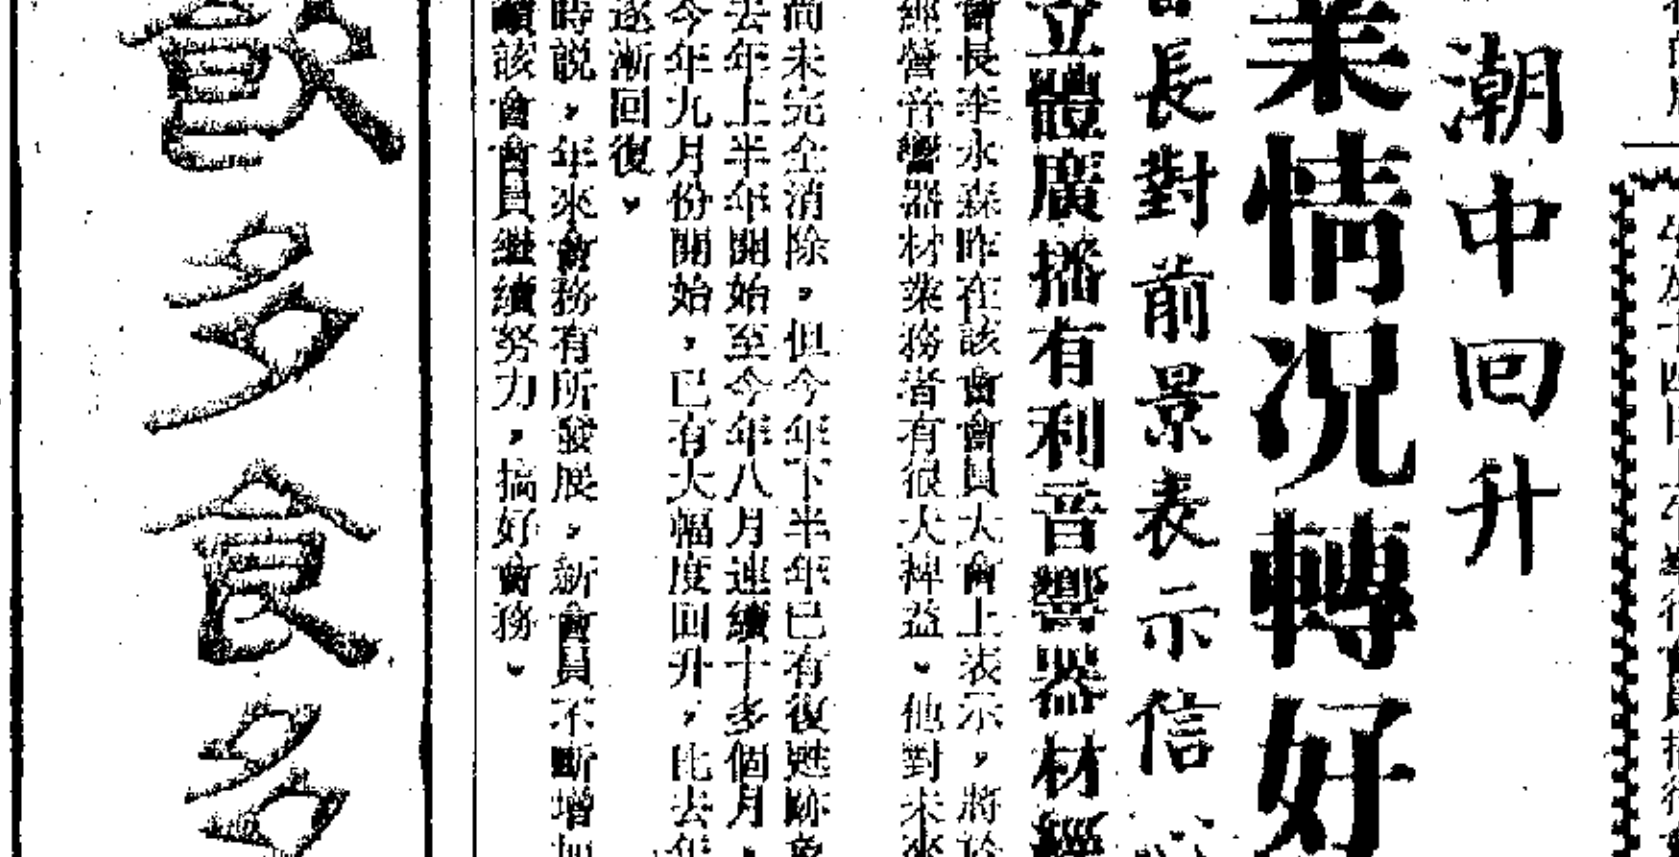 潮中回升
業情況轉好
長對前景表示信心
立體廣播有利音響器材經
會長李永森昨在該會會員大會上表示，將於
經營音響器材業務者有很大裨益。他對未來
尚未完全消除，但今年下半年已有復甦跡象
去年上半年開始至今年八月連續十多個月，
今年九月份開始，已有大幅度回升，比去年
逐漸回復。
時説，年來會務有所發展，新會員不斷增加
續該會會員継續努力，搞好會務。
飲多食多